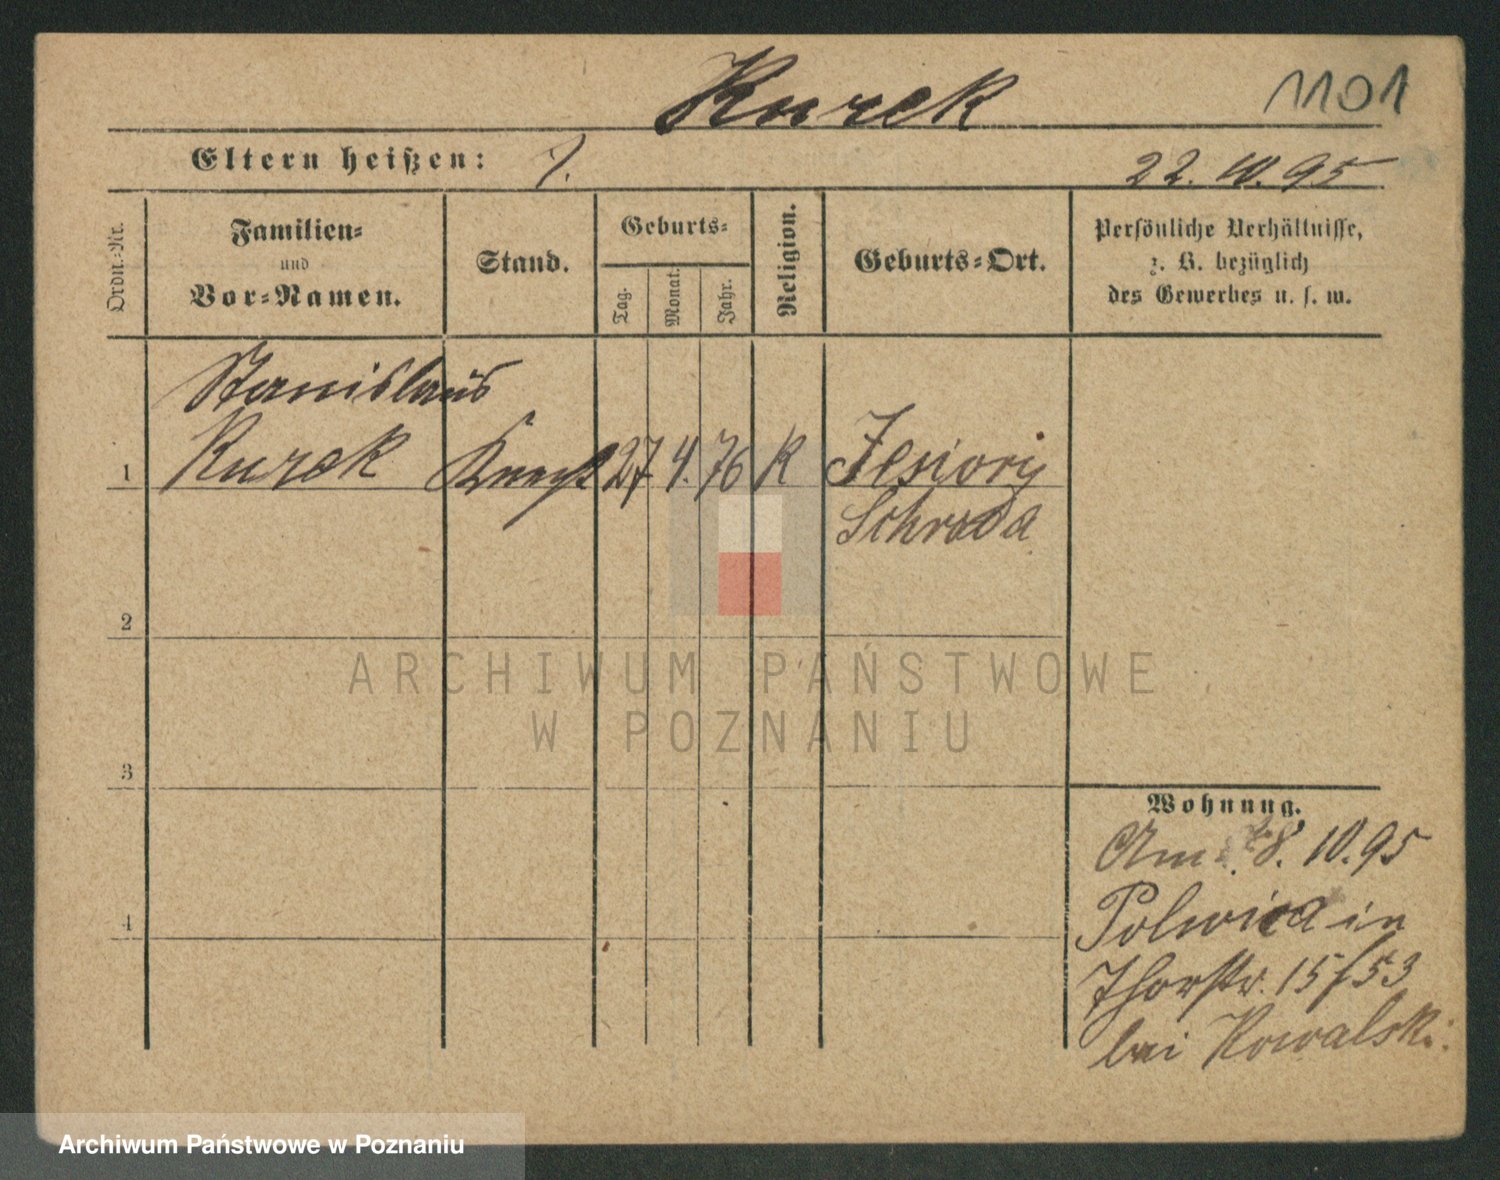 Kurek
1101
Eltern heißen: 7. 22. 10. 95
Ordn.-Nr.
Familien-
und
Vor-Namen.
Stand.
Geburts-
Tag.
Monat.
Jahr.
Religion.
Geburts-Ort.
Persönliche Verhältnisse,
z. B. bezüglich
des Gewerbes u. s. w.
Stanislaus
1 Kurek Knecht 27 4. 76 K Jesiory
Schroda
2
ARCHIWUM PAŃSTWOWE
W POZNANIU
3
Wohnung.
Am 8. 10. 95
4 Polwica in
Thorstr. 15/53
bei Kowalski.
Archiwum Państwowe w Poznaniu